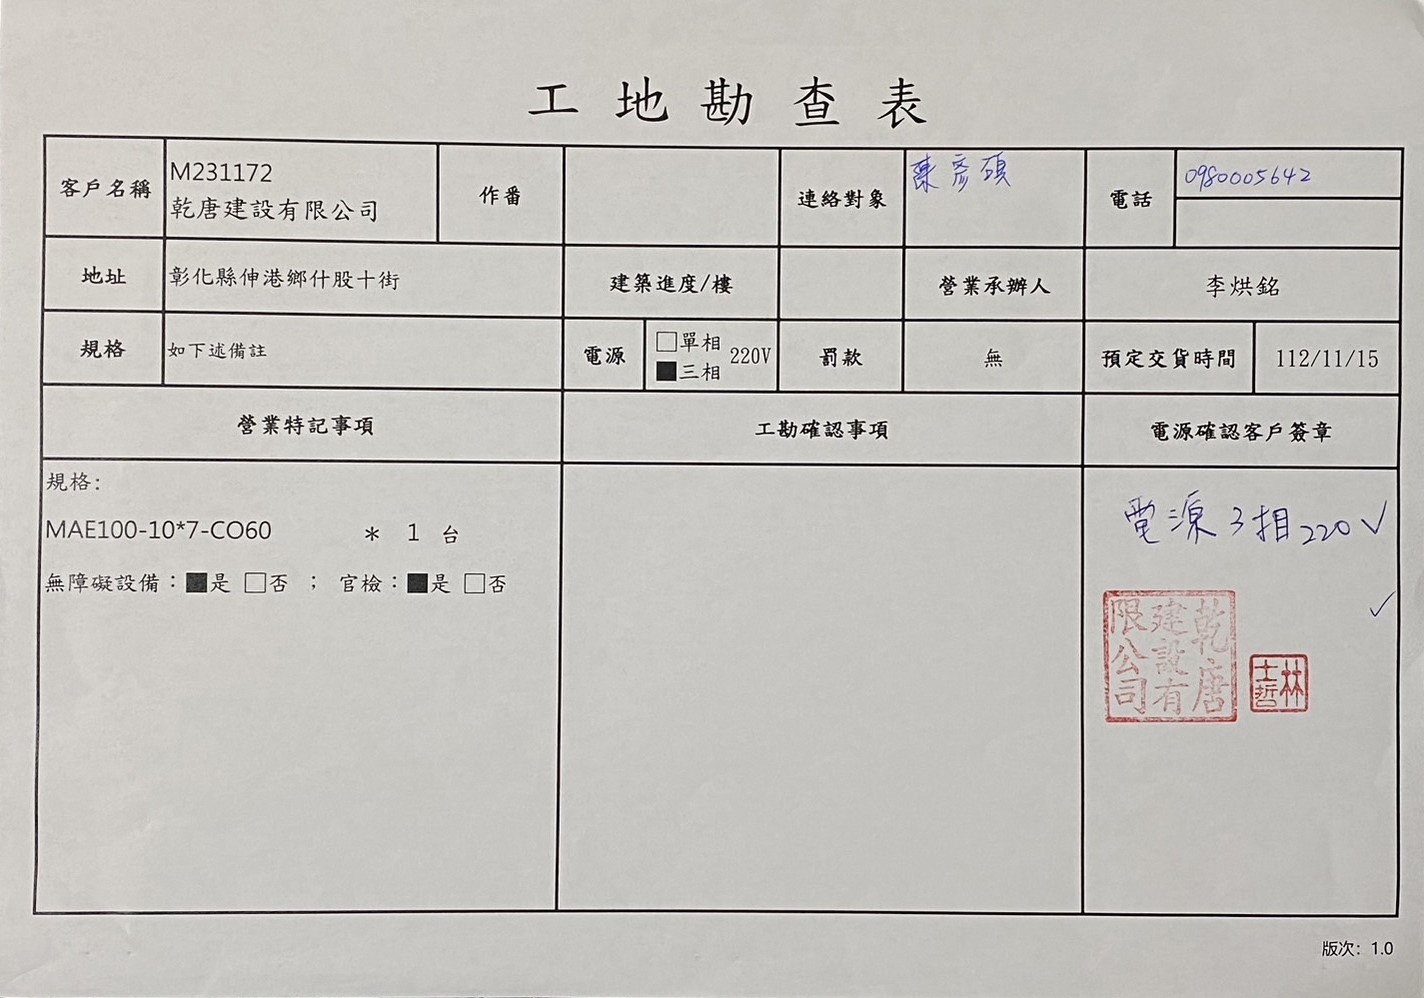 工地勘查表
客戶名稱
M231172
乾唐建設有限公司
作番
連絡對象
陳彥碩
電話
0980005642
地址
彰化縣伸港鄉什股十街
建築進度/樓
營業承辦人
李烘銘
規格
如下述備註
電源
□單相
■三相
220V
罰款
無
預定交貨時間
112/11/15
營業特記事項
工勘確認事項
電源確認客戶簽章
規格:
MAE100-10*7-CO60 * 1 台
無障礙設備：■是 □否 ； 官檢：■是 □否
電源3相220V
✓
乾唐建設有限公司
林士哲
版次: 1.0